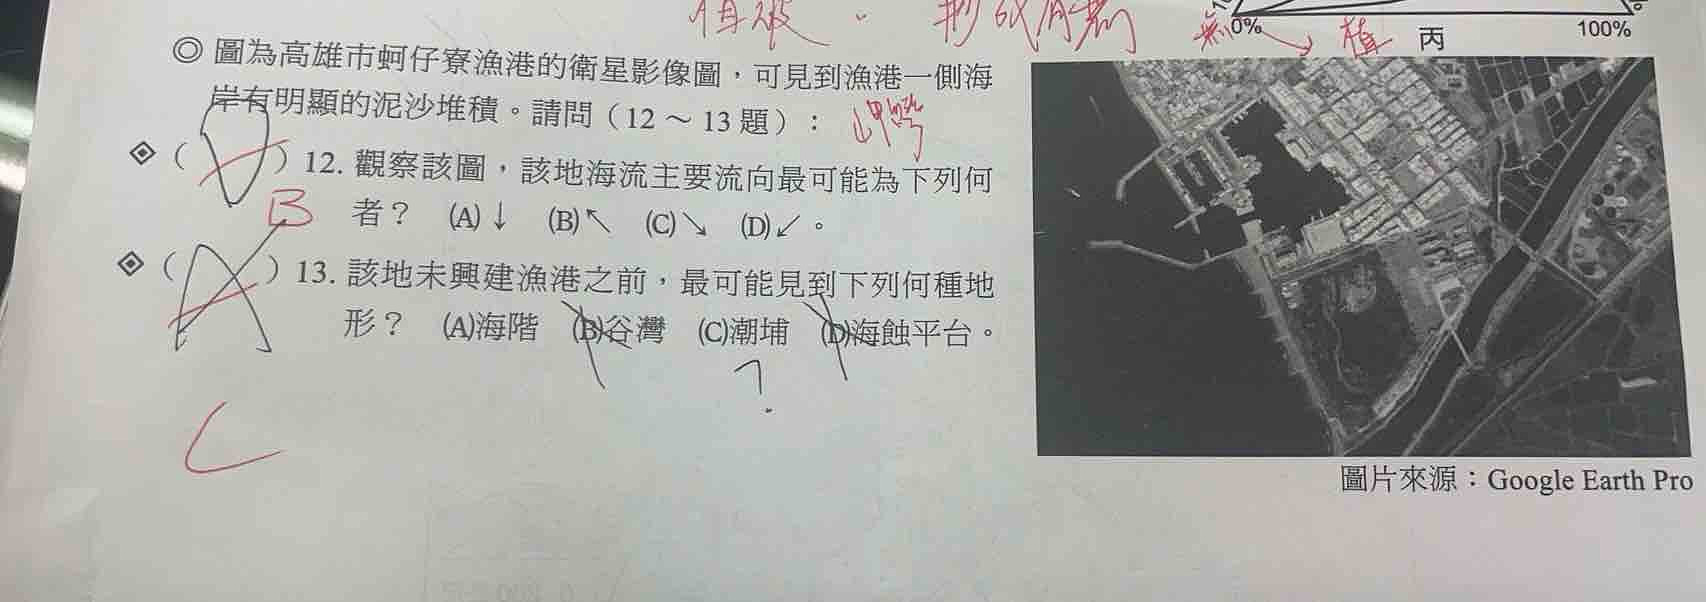 植被 . 形成有
0% 100%
無 → 植 丙
◎ 圖為高雄市蚵仔寮漁港的衛星影像圖，可見到漁港一側海
岸有明顯的泥沙堆積。請問（12～13題）：
岬
◈（D）12. 觀察該圖，該地海流主要流向最可能為下列何
B 者？ (A)↓ (B)↖ (C)↘ (D)↙。
◈（A）13. 該地未興建漁港之前，最可能見到下列何種地
形？ (A)海階 (B)谷灣 (C)潮埔 (D)海蝕平台。
?
C
圖片來源：Google Earth Pro